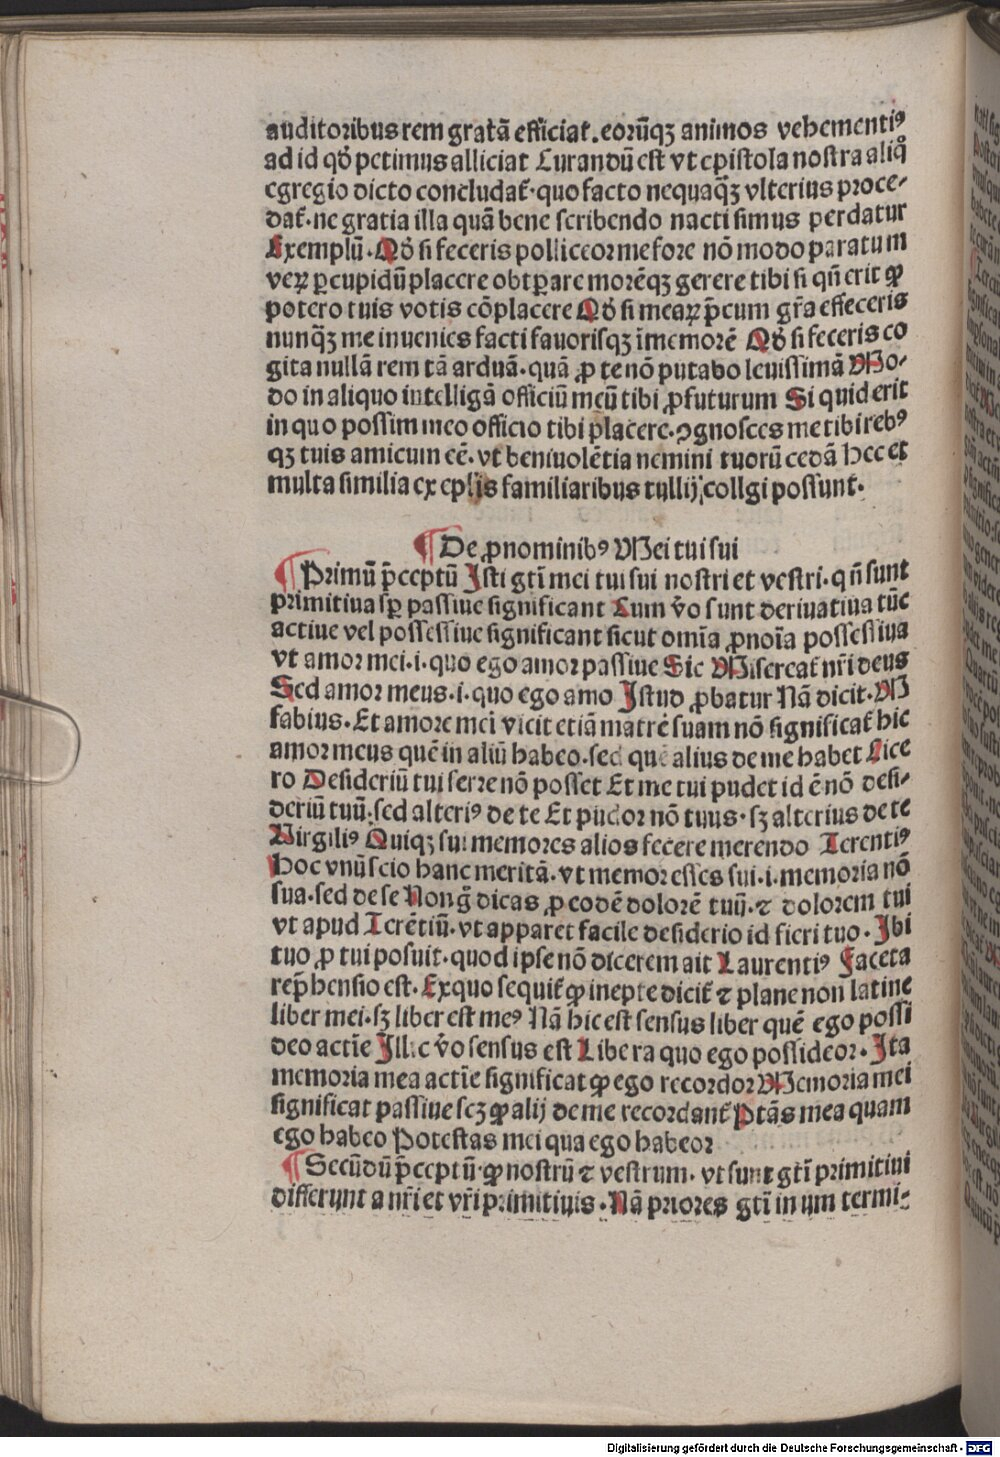 auditoribus rem gratā efficiat̄. eorūqꝫ animos vehementiꝰ
ad id qđ petimus alliciat Curandū est vt epistola nostra aliq̊
egregio dicto concludat̄· quo facto nequaq̄ꝫ vlterius proce⸗
dat̄· ne gratia illa quā bene scribendo nacti simus perdatur
Exemplū· Qđ si feceris polliceor me fore nō modo paratum
veꝝ ꝑcupidū placere obtꝑare morēqꝫ gerere tibi si qn̄ erit ꝙ
potero tuis votis cōplacere Qđ si meaꝝ p̄cum gr̄a effeceris
nunq̄ꝫ me inuenies facti fauorisqꝫ īmemorē Qđ si feceris co
gita nullā rem tā arduā· quā ꝓ te nō putabo leuissimā Mo⸗
do in aliquo intelligā officiū meū tibi ꝓfuturum Si quid erit
in quo possim meo officio tibi placere· ꝯgnosces me tibi rebꝰ
qꝫ tuis amicum eē· vt beniuolētia nemini tuorū cedā Hec et
multa similia ex eplis familiaribus tullij collgi possunt·
¶ De ꝓnominibꝰ Mei tui sui
¶ Primū p̄ceptū Isti gt̄i mei tui sui nostri et vestri· qn̄ sunt
primitiua sꝑ passiue significant Cum v̄o sunt deriuatiua tūc
actiue vel possessiue significant sicut om̄ia ꝓnoīa possessiua
vt amor mei· i· quo ego amor passiue Sic Misereat̄ nr̄i deus
Sed amor meus· i· quo ego amo Istud ꝓbatur Nā dicit· M
fabius· Et amore mei vicit etiā matrē suam nō significat̄ hic
amor meus quē in aliū habeo· sed quē alius de me habet Cice
ro Desideriū tui ferre nō posset Et me tui pudet id ē nō desi⸗
deriū tuū· sed alteriꝰ de te Et pudor nō tuus· sꝫ alterius de te
Virgiliꝰ Quiqꝫ sui memores alios fecere merendo Terentiꝰ
Hoc vnū scio hanc meritā· vt memor esses sui· i· memoria nō
sua· sed de se Non g̊ dicas ꝓ eodē dolorē tuū· ⁊ dolorem tui
vt apud Terētiū· vt apparet facile desiderio id fieri tuo· Ibi
tuo ꝓ tui posuit· quod ipse nō dicerem ait Laurentiꝰ Faceta
rep̄hensio est· Ex quo sequit̄ ꝙ inepte dicit̄ ⁊ plane non latine
liber mei· sꝫ liber est meꝰ Nā hic est sensus liber quē ego possi
deo actīe Illic v̄o sensus est Libera quo ego possideor· Ita
memoria mea actīe significat ꝙ ego recordor Memoria mei
significat passiue scꝫ ꝙ alij de me recordant̄ Ptās mea quam
ego habeo Potestas mei qua ego habeor
¶ Secūdū p̄ceptū· ꝙ nostrū ⁊ vestrum· vt sunt gt̄i primitiui
differunt a nr̄i et vr̄i primitiuis· Nā priores gt̄i in um termi⸗
Digitalisierung gefördert durch die Deutsche Forschungsgemeinschaft - DFG